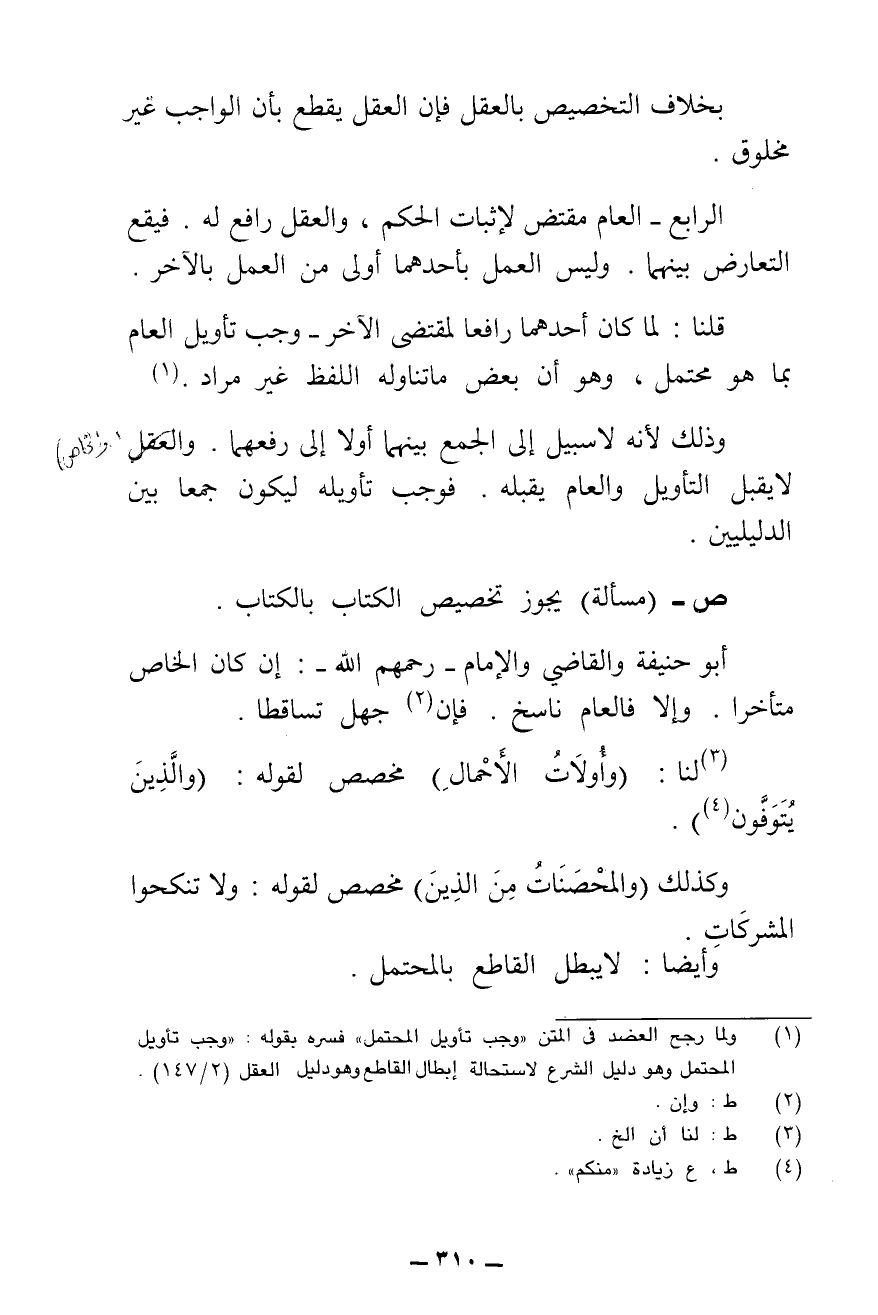 بخلاف التخصيص بالعقل فإن العقل يقطع بأن الواجب غير
مخلوق .
الرابع ـ العام مقتض لإثبات الحكم ، والعقل رافع له . فيقع
التعارض بينهما . وليس العمل بأحدهما أولى من العمل بالآخر .
قلنا : لما كان أحدهما رافعا لمقتضى الآخر ـ وجب تأويل العام
بما هو محتمل ، وهو أن بعض ماتناوله اللفظ غير مراد .(١)
وذلك لأنه لاسبيل إلى الجمع بينهما أولا إلى رفعهما . والعقل
لايقبل التأويل والعام يقبله . فوجب تأويله ليكون جمعا بين
الدليليين .
ص ـ (مسألة) يجوز تخصيص الكتاب بالكتاب .
أبو حنيفة والقاضي والإمام ـ رحمهم الله ـ : إن كان الخاص
متأخرا . وإلا فالعام ناسخ . فإن(٢) جهل تساقطا .
(٣)لنا : (وأُولَاتُ الأَحْمالِ) مخصص لقوله : (والَّذِينَ
يُتَوَفَّون(٤)) .
وكذلك (والمحْصَنَاتُ مِنَ الذِينَ) مخصص لقوله : ولا تنكحوا
المشركَاتِ .
وأيضا : لايبطل القاطع بالمحتمل .
(١) ولما رجح العضد فى المتن «وجب تأويل المحتمل» فسره بقوله : «وجب تأويل
المحتمل وهو دليل الشرع لاستحالة إبطال القاطع وهودليل العقل (١٤٧/٢) .
(٢) ط : وإن .
(٣) ط : لنا أن الخ .
(٤) ط ، ع زيادة «منكم» .
ـ ٣١٠ ـ